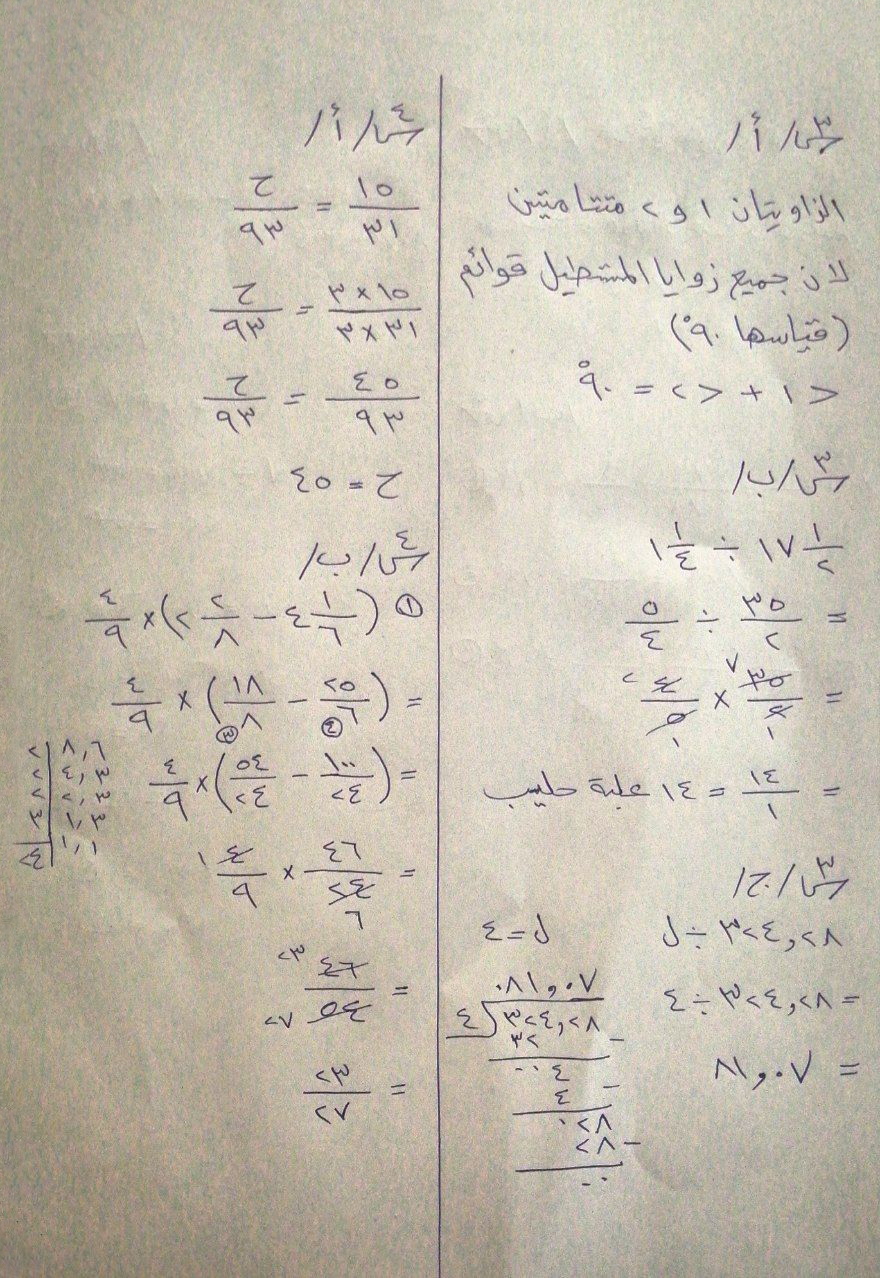 س٣/ أ/
الزاويتان ١ و ٢ متتامتين
لان جميع زوايا المستطيل قوائم
(قياسها ٩٠°)
> ١ + > ٢ = ٩٠°
س٣/ ب/
١٧ ١/٢ ÷ ١ ١/٤
= ٣٥/٢ ÷ ٥/٤
= ٣٥/٢ × ٤/٥
٧ ٢
١ ١
= ١٤/١ = ١٤ علبة حليب
س٣/ ج/
٣٢٤,٢٨ ÷ ل ل = ٤
= ٣٢٤,٢٨ ÷ ٤
= ٨١,٠٧
٠٨١,٠٧
٤ ٣٢٤,٢٨
٣٢ -
٠٠٤
٤ -
٠٢٨
٢٨ -
٠٠
س٤/ أ/
١٥/٣١ = ح/٩٣
١٥ × ٣/٣١ × ٣ = ح/٩٣
٤٥/٩٣ = ح/٩٣
ح = ٤٥
س٤/ ب/
① (٤ ١/٦ - ٢ ٢/٨) × ٤/٩
= (٢٥/٦ - ١٨/٨) × ٤/٩
④ ③
= (١٠٠/٢٤ - ٥٤/٢٤) × ٤/٩
٦,٨ ٢
٣,٤ ٢
٣,٢ ٢
٣,١ ٣
١,١ ٢٤
= ٤٦/٢٤ × ٤/٩
١
٦
= ٤٦/٥٤
٢٣
٢٧
= ٢٣/٢٧